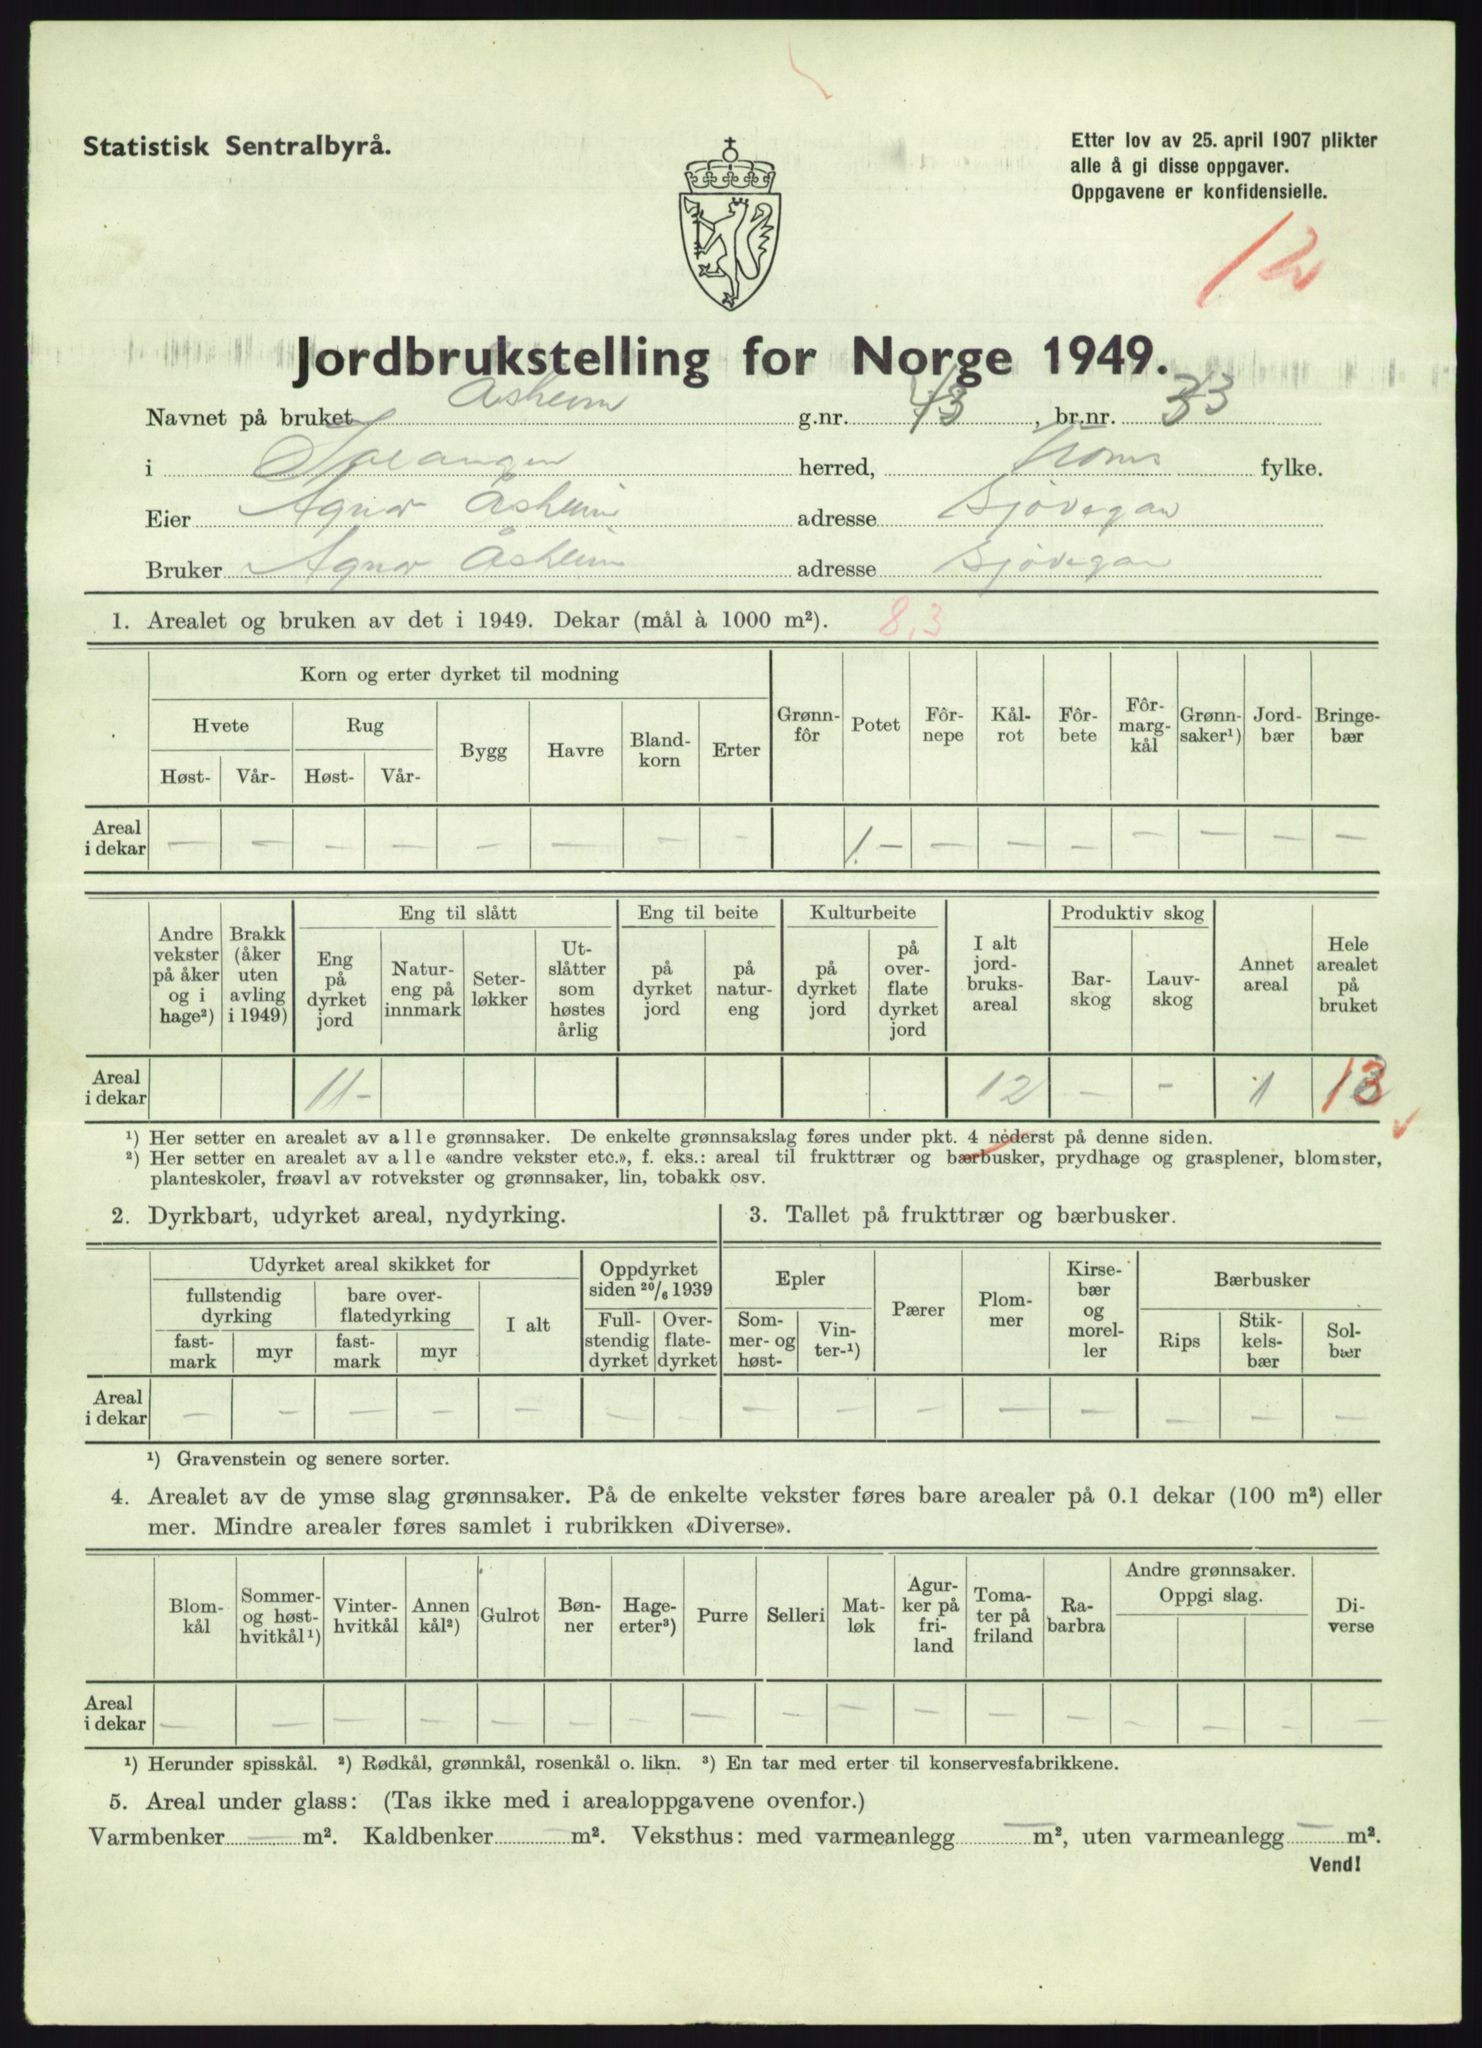 Statistisk Sentralbyrå.
Etter lov av 25. april 1907 plikter
alle å gi disse oppgaver.
Oppgavene er konfidensielle.
12
Jordbrukstelling for Norge 1949.
Navnet på bruket Åsheim g.nr. 43, br.nr. 33
i Salangen herred, Troms fylke.
Eier Agnar Åsheim adresse Sjøvegan
Bruker Agnar Åsheim adresse Sjøvegan
1. Arealet og bruken av det i 1949. Dekar (mål à 1000 m²). 8,3
Korn og erter dyrket til modning
Hvete Rug Bygg Havre Bland-korn Erter Grønn-fôr Potet Fôr-nepe Kål-rot Fôr-bete Fôr-marg-kål Grønn-saker¹) Jord-bær Bringe-bær
Høst- Vår- Høst- Vår-
Areal i dekar — — — — — — — — 1.— — — — — — — —
Andre vekster på åker og i hage²) Brakk (åker uten avling i 1949) Eng til slått Eng til beite Kulturbeite I alt jord-bruks-areal Produktiv skog Annet areal Hele arealet på bruket
Eng på dyrket jord Natur-eng på innmark Seter-løkker Ut-slåtter som høstes årlig på dyrket jord på natur-eng på dyrket jord på over-flate dyrket jord Bar-skog Lauv-skog
Areal i dekar 11— 12 — — 1 13
¹) Her setter en arealet av alle grønnsaker. De enkelte grønnsakslag føres under pkt. 4 nederst på denne siden.
²) Her setter en arealet av alle «andre vekster etc.», f. eks.: areal til frukttrær og bærbusker, prydhage og grasplener, blomster,
planteskoler, frøavl av rotvekster og grønnsaker, lin, tobakk osv.
2. Dyrkbart, udyrket areal, nydyrking.
Udyrket areal skikket for Oppdyrket siden 20/6 1939
fullstendig dyrking bare over-flatedyrking I alt Full-stendig dyrket Over-flate-dyrket
fast-mark myr fast-mark myr
Areal i dekar — — — — — — —
3. Tallet på frukttrær og bærbusker.
Epler Pærer Plom-mer Kirse-bær og morel-ler Bærbusker
Som-mer- og høst- Vin-ter-¹) Rips Stik-kels-bær Sol-bær
— — — — — — — —
¹) Gravenstein og senere sorter.
4. Arealet av de ymse slag grønnsaker. På de enkelte vekster føres bare arealer på 0.1 dekar (100 m²) eller
mer. Mindre arealer føres samlet i rubrikken «Diverse».
Blom-kål Sommer- og høst-hvitkål¹) Vinter-hvitkål Annen kål²) Gulrot Bøn-ner Hage-erter³) Purre Selleri Mat-løk Agur-ker på fri-land Toma-ter på friland Ra-barbra Andre grønnsaker. Oppgi slag. Di-verse
Areal i dekar — — — — — — — — — — — — — — — — —
¹) Herunder spisskål. ²) Rødkål, grønnkål, rosenkål o. likn. ³) En tar med erter til konservesfabrikkene.
5. Areal under glass: (Tas ikke med i arealoppgavene ovenfor.)
Varmbenker — m². Kaldbenker — m². Veksthus: med varmeanlegg — m², uten varmeanlegg — m².
Vend!